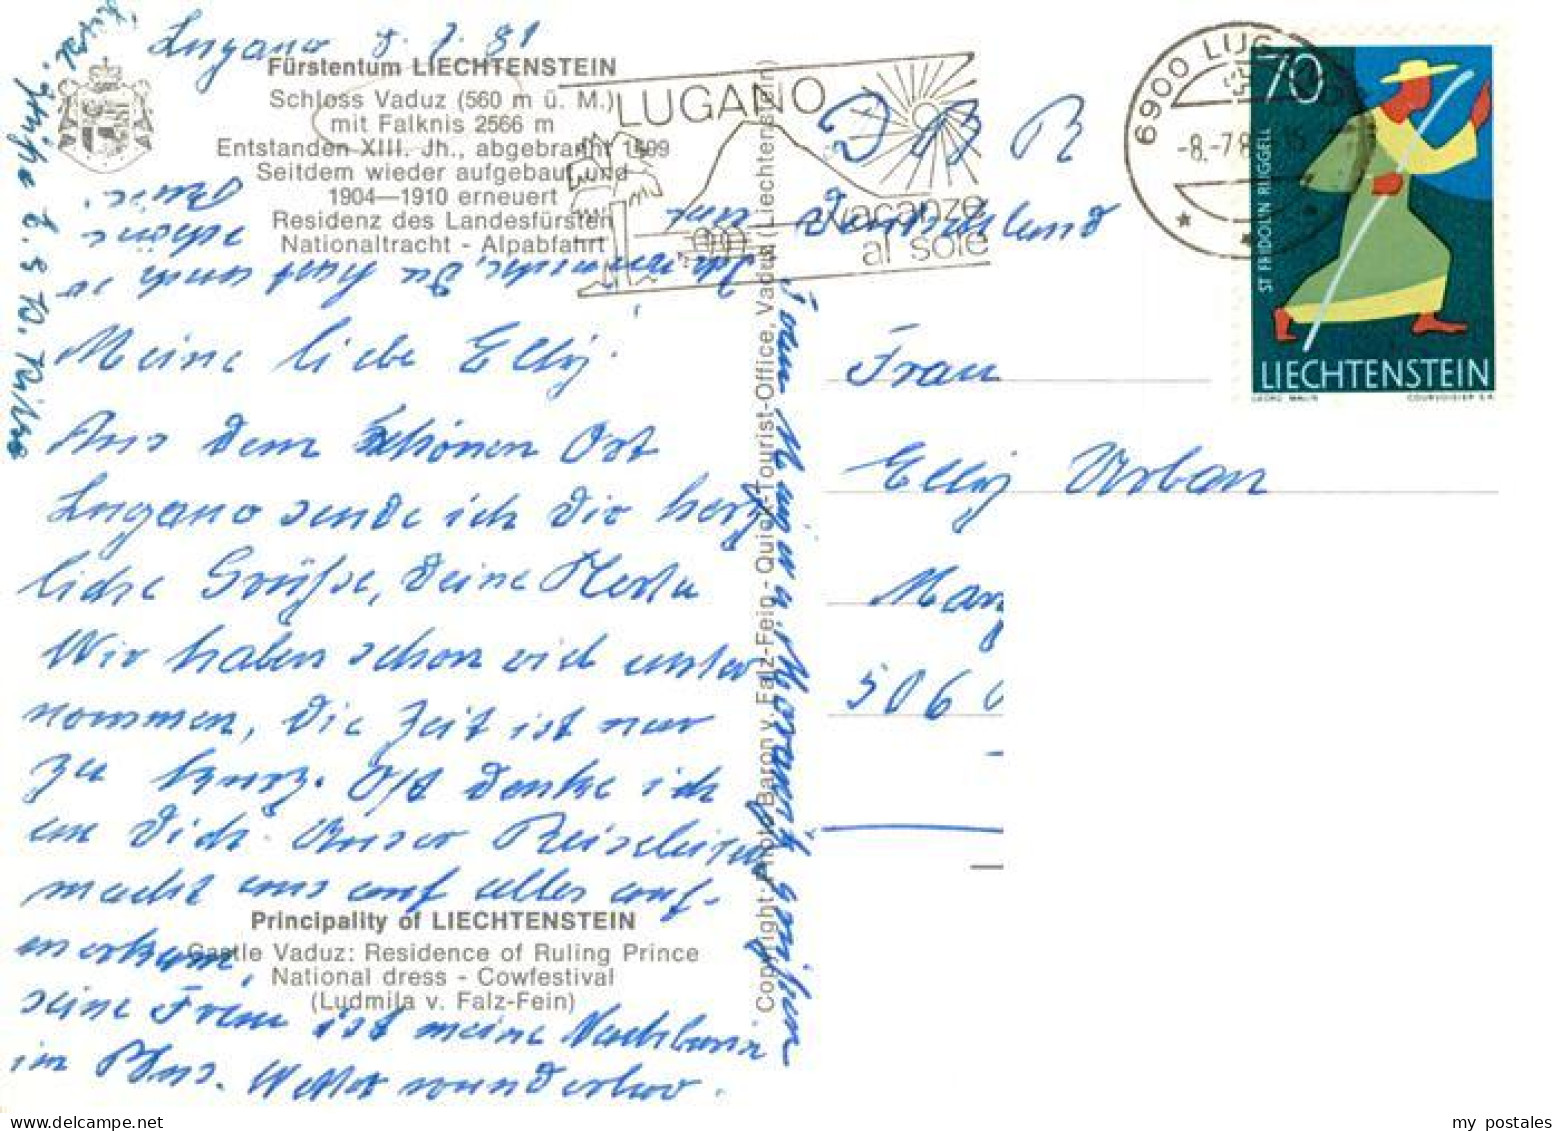 Lugano 8. 7. 81
Fürstentum LIECHTENSTEIN
Schloss Vaduz (560 m ü. M.)
mit Falknis 2566 m
Entstanden XIII. Jh., abgebrannt 1499
Seitdem wieder aufgebaut und
1904—1910 erneuert
Residenz des Landesfürsten
Nationaltracht - Alpabfahrt
Meine liebe Elly!
Aus dem schönen Ort
Lugano sende ich Dir herz
liche Grüße, Deine Herta
Wir haben schon viel unter
nommen, die Zeit ist nur
zu kurz. Oft denke ich
an Dich. Unser Reiseleiter
macht uns auf alles auf-
merksam,
seine Frau ist meine Nachbarin
im Bus. Wetter wunderbar.
Principality of LIECHTENSTEIN
Castle Vaduz: Residence of Ruling Prince
National dress - Cowfestival
(Ludmila v. Falz-Fein)
Du hast auch so
schöne
Copyright: Photo Baron v. Falz-Fein - Quick-Tourist-Office, Vaduz (Liechtenstein)
LUGANO
vacanze
al sole
6900 LUG
-8.-7.8
70
ST FRIDOLIN RUGGELL
LIECHTENSTEIN
GEORG MALIN COURVOISIER S.A.
Deutschland
Frau
Elly Urban
5060
my postales